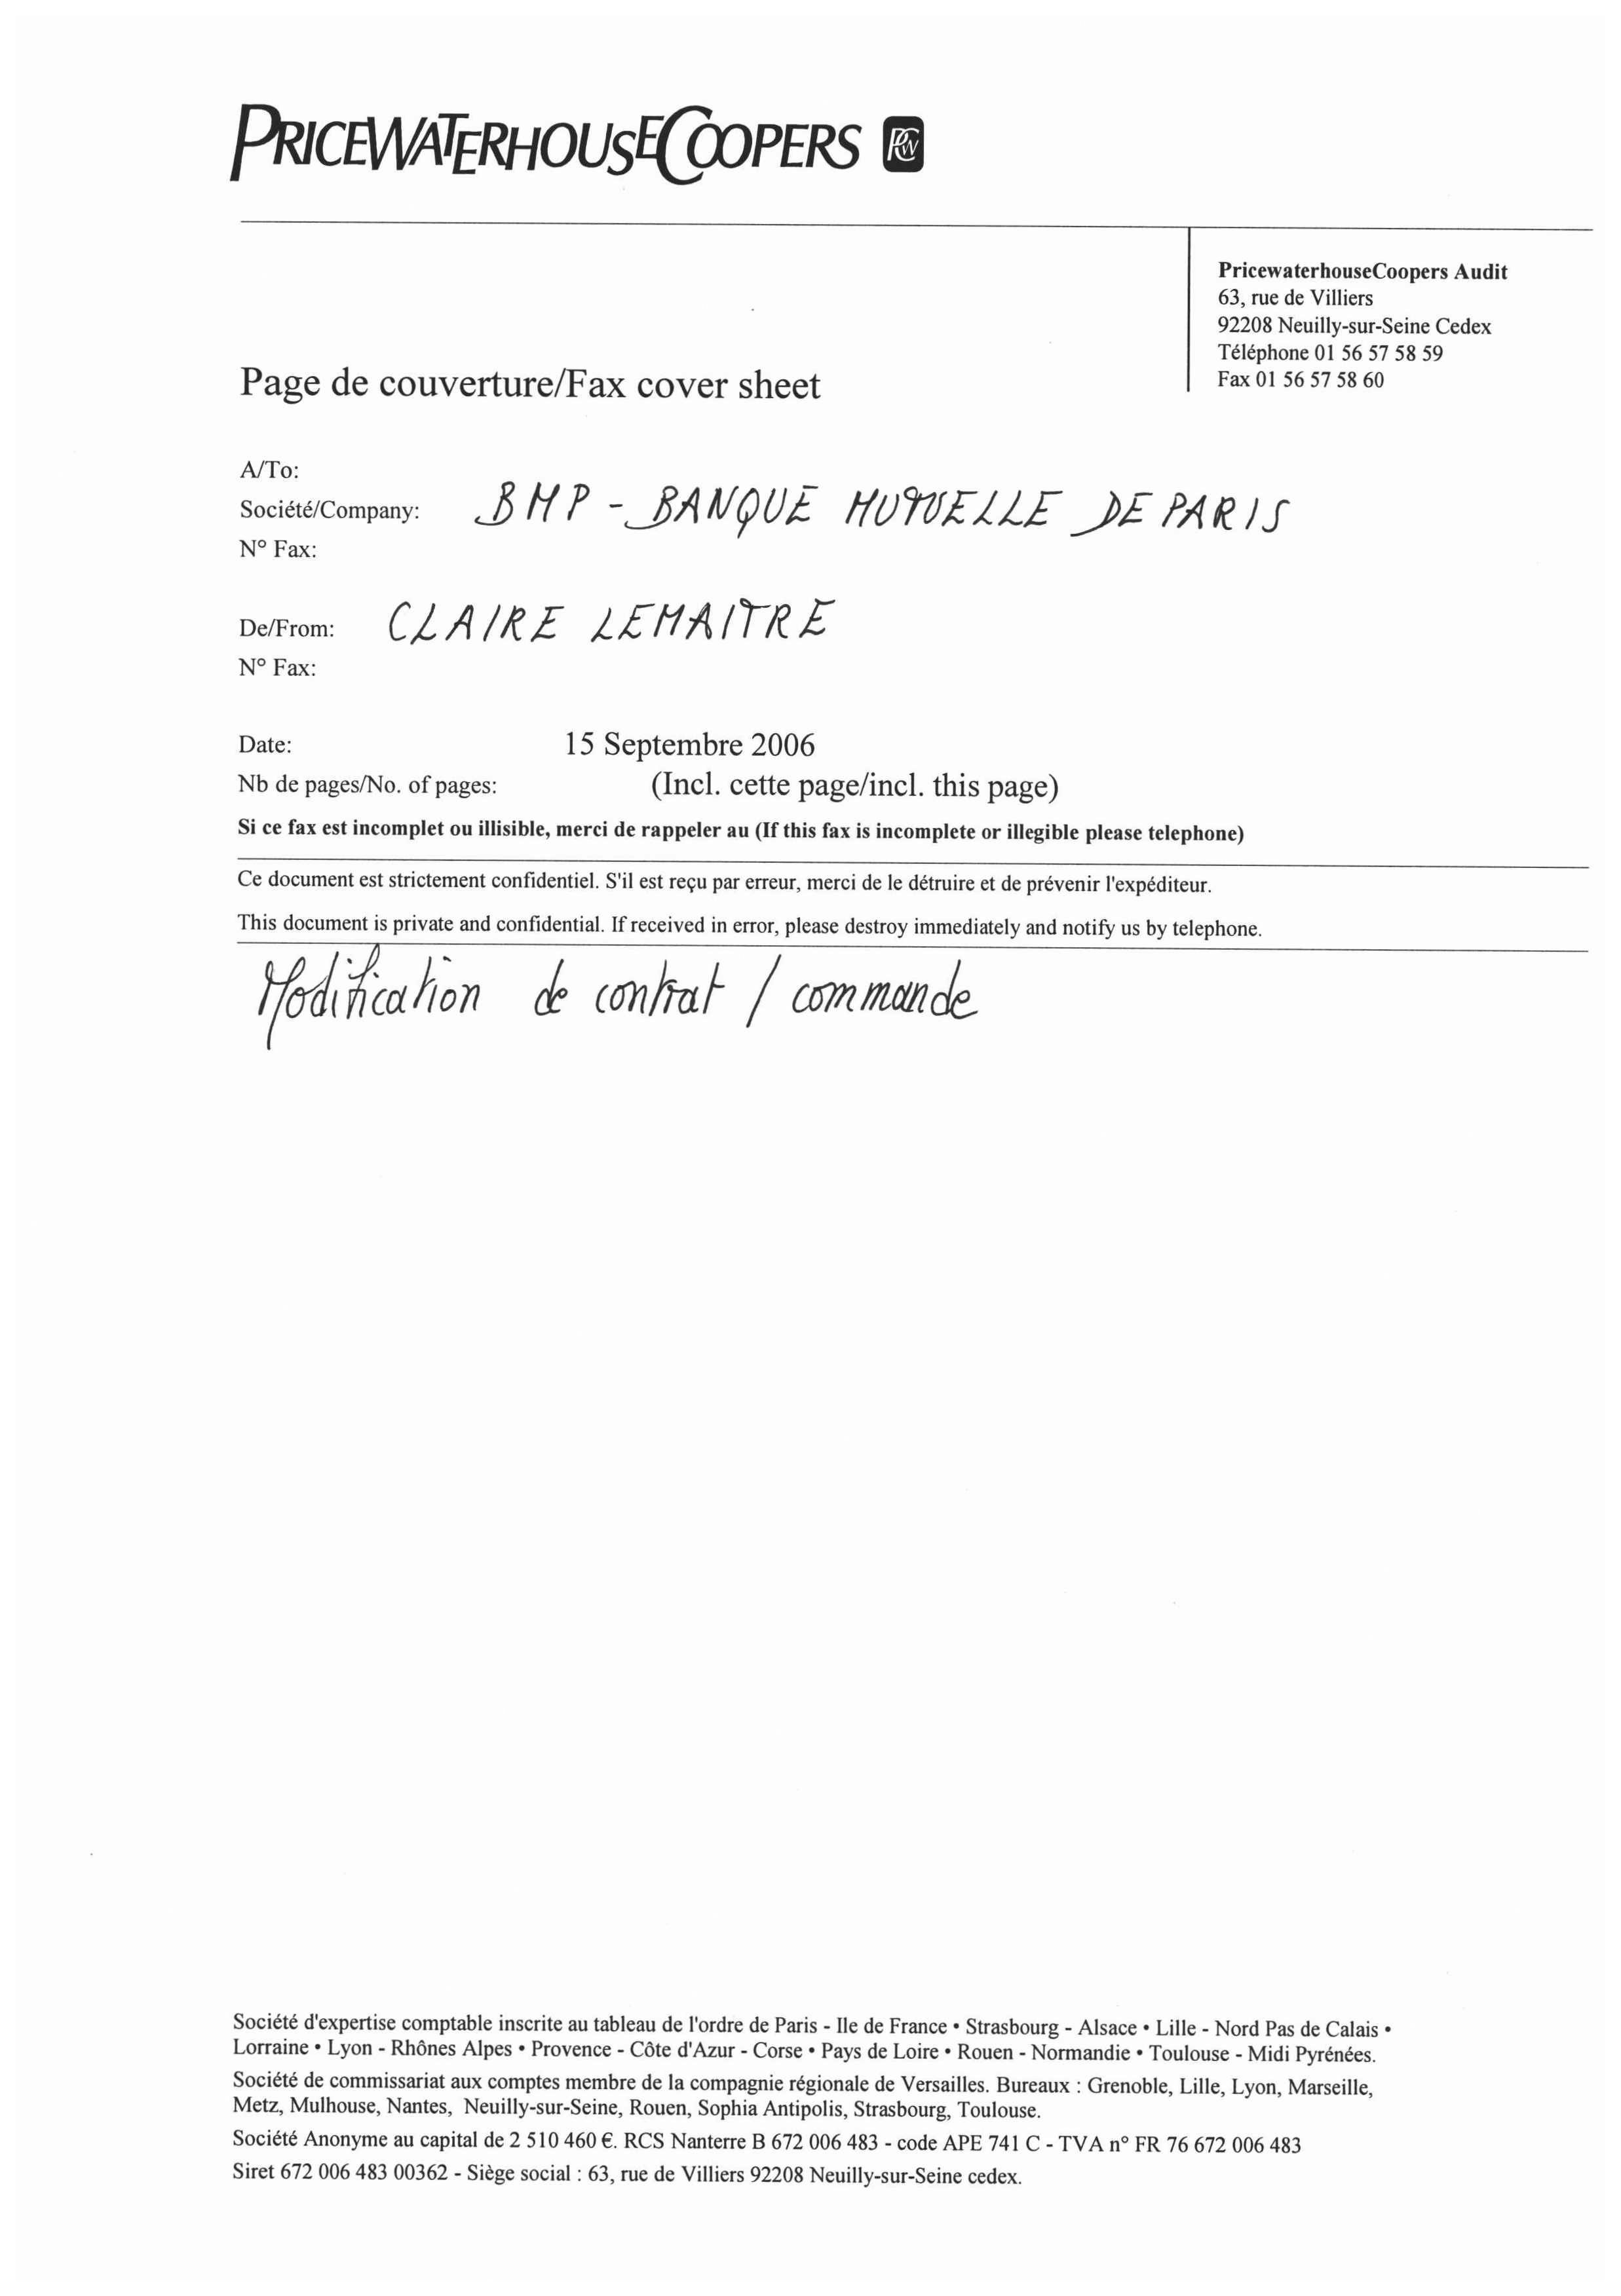 PRICEWATERHOUSECOOPERS PwC
PricewaterhouseCoopers Audit
63, rue de Villiers
92208 Neuilly-sur-Seine Cedex
Téléphone 01 56 57 58 59
Fax 01 56 57 58 60
Page de couverture/Fax cover sheet
A/To:
Société/Company: BMP - BANQUE MUTUELLE DE PARIS
N° Fax:
De/From: CLAIRE LEMAITRE
N° Fax:
Date: 15 Septembre 2006
Nb de pages/No. of pages: (Incl. cette page/incl. this page)
Si ce fax est incomplet ou illisible, merci de rappeler au (If this fax is incomplete or illegible please telephone)
Ce document est strictement confidentiel. S'il est reçu par erreur, merci de le détruire et de prévenir l'expéditeur.
This document is private and confidential. If received in error, please destroy immediately and notify us by telephone.
Modification de contrat / commande
Société d'expertise comptable inscrite au tableau de l'ordre de Paris - Ile de France • Strasbourg - Alsace • Lille - Nord Pas de Calais •
Lorraine • Lyon - Rhônes Alpes • Provence - Côte d'Azur - Corse • Pays de Loire • Rouen - Normandie • Toulouse - Midi Pyrénées.
Société de commissariat aux comptes membre de la compagnie régionale de Versailles. Bureaux : Grenoble, Lille, Lyon, Marseille,
Metz, Mulhouse, Nantes, Neuilly-sur-Seine, Rouen, Sophia Antipolis, Strasbourg, Toulouse.
Société Anonyme au capital de 2 510 460 €. RCS Nanterre B 672 006 483 - code APE 741 C - TVA n° FR 76 672 006 483
Siret 672 006 483 00362 - Siège social : 63, rue de Villiers 92208 Neuilly-sur-Seine cedex.